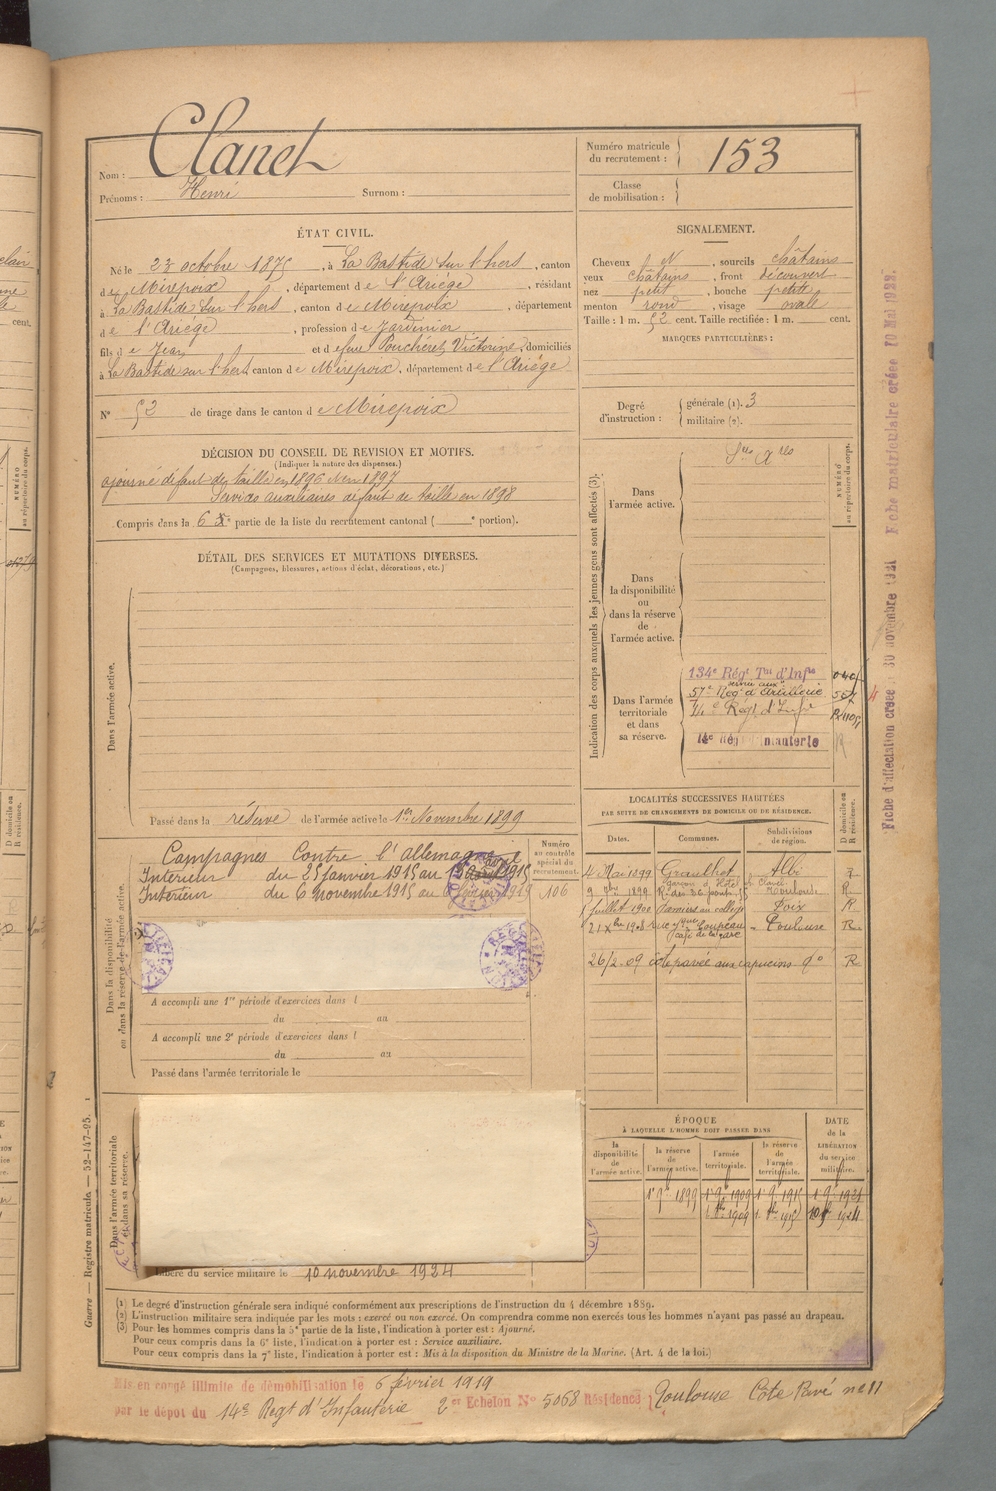 Nom : Clanet
Prénoms : Henri Surnom :
Numéro matricule du recrutement : 153
Classe de mobilisation :
ÉTAT CIVIL.
Né le 23 octobre 1875, à La Bastide sur l'hers, canton
de Mirepoix, département de l'Ariège, résidant
à La Bastide sur l'hers, canton de Mirepoix, département
de l'Ariège, profession de Jardinier
fils de Jean et de feue Pouchéret Victorine, domiciliés
à La Bastide sur l'hers canton de Mirepoix, département de l'Ariège
N° 52 de tirage dans le canton de Mirepoix
SIGNALEMENT.
Cheveux d N, sourcils châtains
yeux châtains, front découvert
nez petit, bouche petite
menton rond, visage ovale
Taille : 1 m. 52 cent. Taille rectifiée : 1 m. cent.
MARQUES PARTICULIÈRES :
Degré d'instruction : générale (1). 3
militaire (2).
DÉCISION DU CONSEIL DE REVISION ET MOTIFS.
(Indiquer la nature des dispenses.)
ajourné défaut de taille en 1896 Idem 1897
Services auxiliaires défaut de taille en 1898
Compris dans la 6e partie de la liste du recrutement cantonal ( e portion).
DÉTAIL DES SERVICES ET MUTATIONS DIVERSES.
(Campagnes, blessures, actions d'éclat, décorations, etc.)
Dans l'armée active.
Passé dans la réserve de l'armée active le 1er Novembre 1899
Indication des corps auxquels les jeunes gens sont affectés (3).
NUMÉRO au répertoire du corps.
Dans l'armée active.
Sces Ares
Dans la disponibilité ou dans la réserve de l'armée active.
Dans l'armée territoriale et dans sa réserve.
134e Régt Tial d'Infie
service aux
57e Régt d'Artillerie
14e Régt d'Infie
Fiche d'affectation créée 30 novembre 1921 Fiche matriculaire créée 10 Mai 1922.
Numéro au contrôle spécial du recrutement.
106
Campagnes Contre l'Allemagne
Intérieur du 25 janvier 1915 au 15 avril 1915
Intérieur du 6 novembre 1915 au 6 1919
Dans la disponibilité ou dans la réserve de l'armée active.
A accompli une 1re période d'exercices dans l
du au
A accompli une 2e période d'exercices dans l
du au
Passé dans l'armée territoriale le
Dans l'armée territoriale et dans sa réserve.
Libéré du service militaire le 10 novembre 1924
LOCALITÉS SUCCESSIVES HABITÉES
PAR SUITE DE CHANGEMENTS DE DOMICILE OU DE RÉSIDENCE.
D domicile ou R résidence.
Dates. Communes. Subdivisions de région.
4 Mai 1899 Graulhet Albi
9 9bre 1899 garçon d'Hôtel R. des 36 ponts 55 Toulouse R
1 Juillet 1900 Pamiers au collège Foix R
21 Xbre 1908 café de la gare Toulouse R
26/2-09 côte pavée aux capucins do R
ÉPOQUE
À LAQUELLE L'HOMME DOIT PASSER DANS
la disponibilité de l'armée active. la réserve de l'armée active. l'armée territoriale. la réserve de l'armée territoriale.
DATE de la LIBÉRATION du service militaire.
1r 9e 1899 1r 9e 1909 1r 9e 1915 1r 9e 1921
Guerre — Registre matricule. — 52-147-95.
(1) Le degré d'instruction générale sera indiqué conformément aux prescriptions de l'instruction du 4 décembre 1889.
(2) L'instruction militaire sera indiquée par les mots : exercé ou non exercé. On comprendra comme non exercés tous les hommes n'ayant pas passé au drapeau.
(3) Pour les hommes compris dans la 5e partie de la liste, l'indication à porter est : Ajourné.
Pour ceux compris dans la 6e liste, l'indication à porter est : Service auxiliaire.
Pour ceux compris dans la 7e liste, l'indication à porter est : Mis à la disposition du Ministre de la Marine. (Art. 4 de la loi.)
Mis en congé illimité de démobilisation le 6 février 1919
par le dépôt du 14e Regt d'Infanterie 2er Echelon N° 5068 Résidence Toulouse Côte Pavé no 11